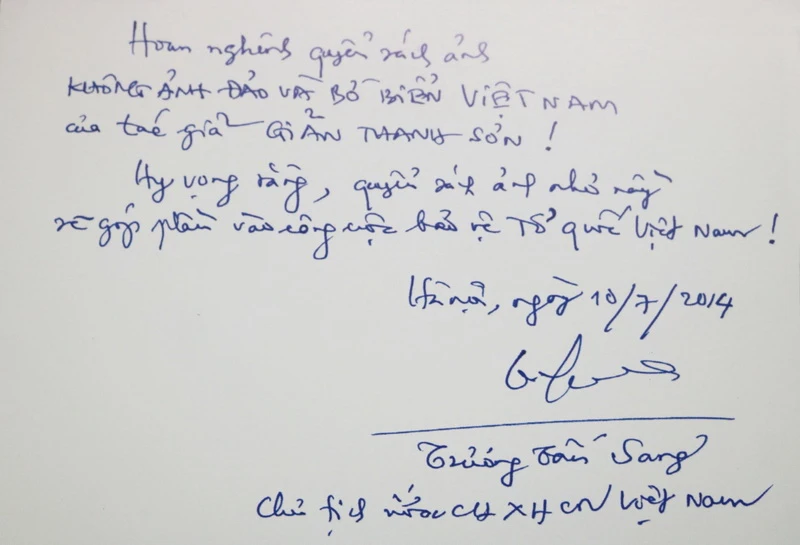 Hoan nghênh quyển sách ảnh
KHÔNG ẢNH ĐẢO VÀ BỜ BIỂN VIỆT NAM
của tác giả GIẢN THANH SƠN !
Hy vọng rằng, quyển sách ảnh nhỏ này
sẽ góp phần vào công cuộc bảo vệ Tổ quốc Việt Nam !
Hà nội, ngày 10/7/2014
Trương Tấn Sang
Chủ tịch nước CHXHCN Việt Nam